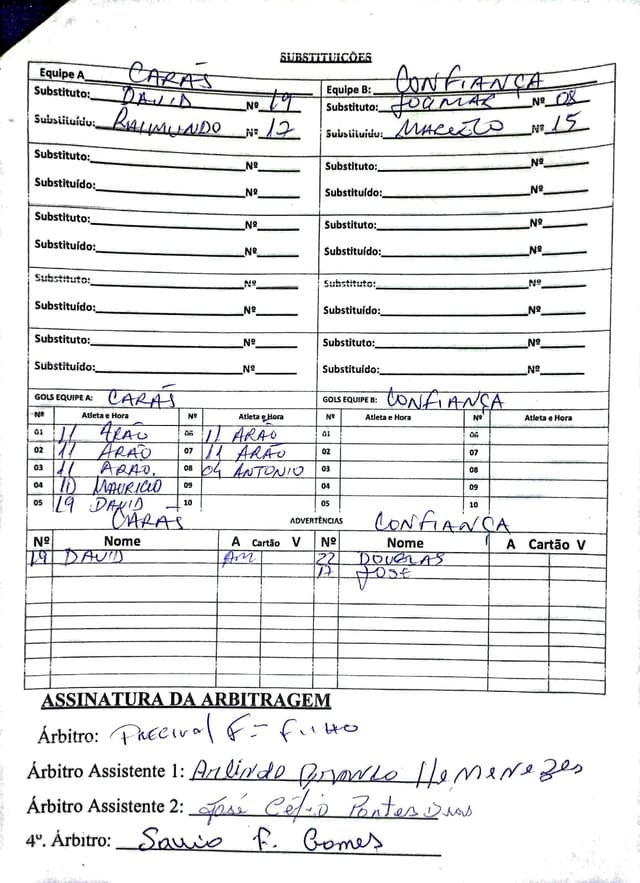 SUBSTITUICÕES
Equipe A CARÁS
Equipe B: CONFIANÇA
Substituto: DAVID Nº 19
Substituto: JOCIMAR Nº 08
Substituído: RAIMUNDO Nº 17
Substituídu: Nº 15
Substituto: Nº
Substituto: Nº
Substituído: Nº
Substituído: Nº
Substituto: Nº
Substituto: Nº
Substituído: Nº
Substituído: Nº
Substituto: Nº
Substituto: Nº
Substituído: Nº
Substituído: Nº
Substituto: Nº
Substituto: Nº
Substituído: Nº
Substituído: Nº
GOLS EQUIPE A: CARÁS
GOLS EQUIPE B: CONFIANÇA
Nº Atleta e Hora Nº Atleta e Hora Nº Atleta e Hora Nº Atleta e Hora
01 11 ARAO 06 11 ARAO 01 06
02 11 ARAO 07 11 ARAO 02 07
03 11 ARAO. 08 04 ANTONIO 03 08
04 10 MAURICIO 09 04 09
05 19 DAVID 10 05 10
CARÁS ADVERTÊNCIAS CONFIANÇA
Nº Nome A Cartão V Nº Nome A Cartão V
19 DAVID AM 22 DOUGLAS
17 JOSE
ASSINATURA DA ARBITRAGEM
Árbitro: F. FILHO
Árbitro Assistente 1: Arlindo Menezes
Árbitro Assistente 2: José Célio Pontes Dias
4º. Árbitro: Savio F. Gomes